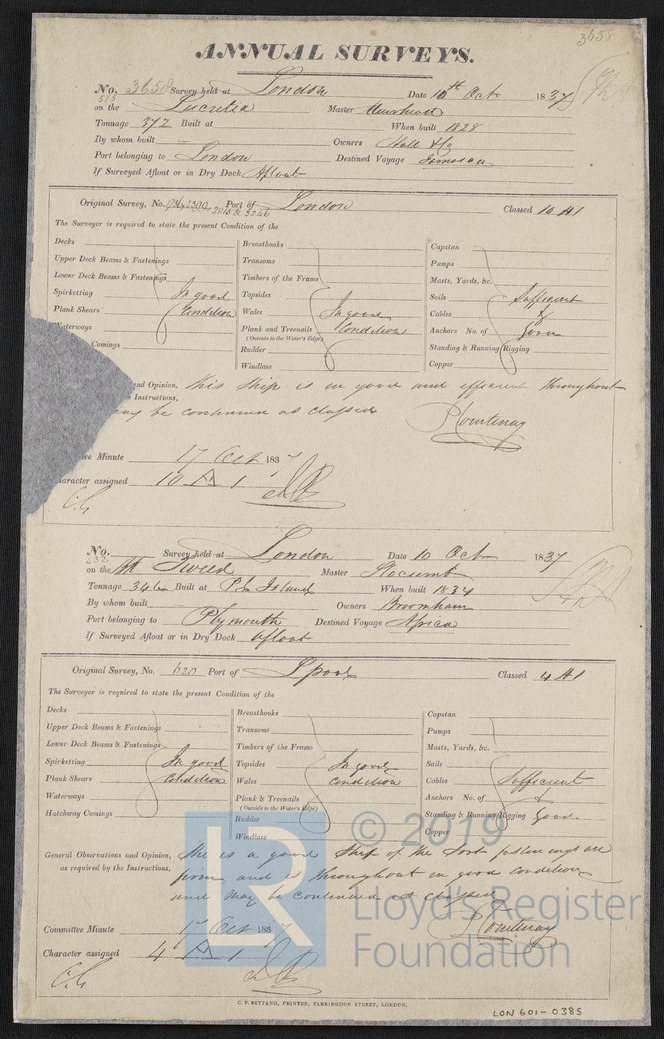 3658
ANNUAL SURVEYS.
No. 3658 Survey held at London Date 10th Oct 1837
515
on the Lucretia Master Muirhead
Tonnage 372 Built at When built 1828
By whom built Owners Hall & Co
Port belonging to London Destined Voyage Jamaica
If Surveyed Afloat or in Dry Dock Afloat
Original Survey, No. 2300 Port of London Classed 10 A1
2818 & 3246
The Surveyor is required to state the present Condition of the
Decks
Upper Deck Beams & Fastenings
Lower Deck Beams & Fastenings
Spirketting In good
Plank Shears Condition
Waterways
Comings
Breasthooks
Transoms
Timbers of the Frame
Topsides
Wales In good
Plank and Treenails Condition
(Outside to the Water's Edge)
Rudder
Windlass
Capstan
Pumps
Masts, Yards, &c.
Sails Sufficient
Cables &
Anchors No. of Good
Standing & Running Rigging
Copper
and Opinion, this ship is in good and efficient throughout
Instructions,
may be continued as classed
P Courtenay
Minute 17 Oct 1837
Character assigned 10 A 1
No. Survey held at London Date 10 Oct 1837
on the Tweed Master Slocumb
Tonnage 346 Built at P. E. Island When built 1834
By whom built Owners Broomham
Port belonging to Plymouth Destined Voyage Africa
If Surveyed Afloat or in Dry Dock Afloat
Original Survey, No. 620 Port of Lpool Classed 4 A1
The Surveyor is required to state the present Condition of the
Decks
Upper Deck Beams & Fastenings
Lower Deck Beams & Fastenings
Spirketting In good
Plank Shears Condition
Waterways
Hatchway Comings
Breasthooks
Transoms
Timbers of the Frame
Topsides In good
Wales condition
Plank & Treenails
(Outside to the Water's Edge)
Rudder
Windlass
Capstan
Pumps
Masts, Yards, &c.
Sails
Cables Sufficient
Anchors No. of &
Standing & Running Rigging Good
Copper
General Observations and Opinion, She is a good Ship of the Sort fastenings are
as required by the Instructions,
firm and is throughout in good condition
and may be continued as classed
P Courtenay
Committee Minute 17 Oct 1837
Character assigned 4 A 1
C. F. SEYFANG, PRINTER, FARRINGDON STREET, LONDON.
LON 601-0385
LR
© 2019
Lloyd's Register
Foundation